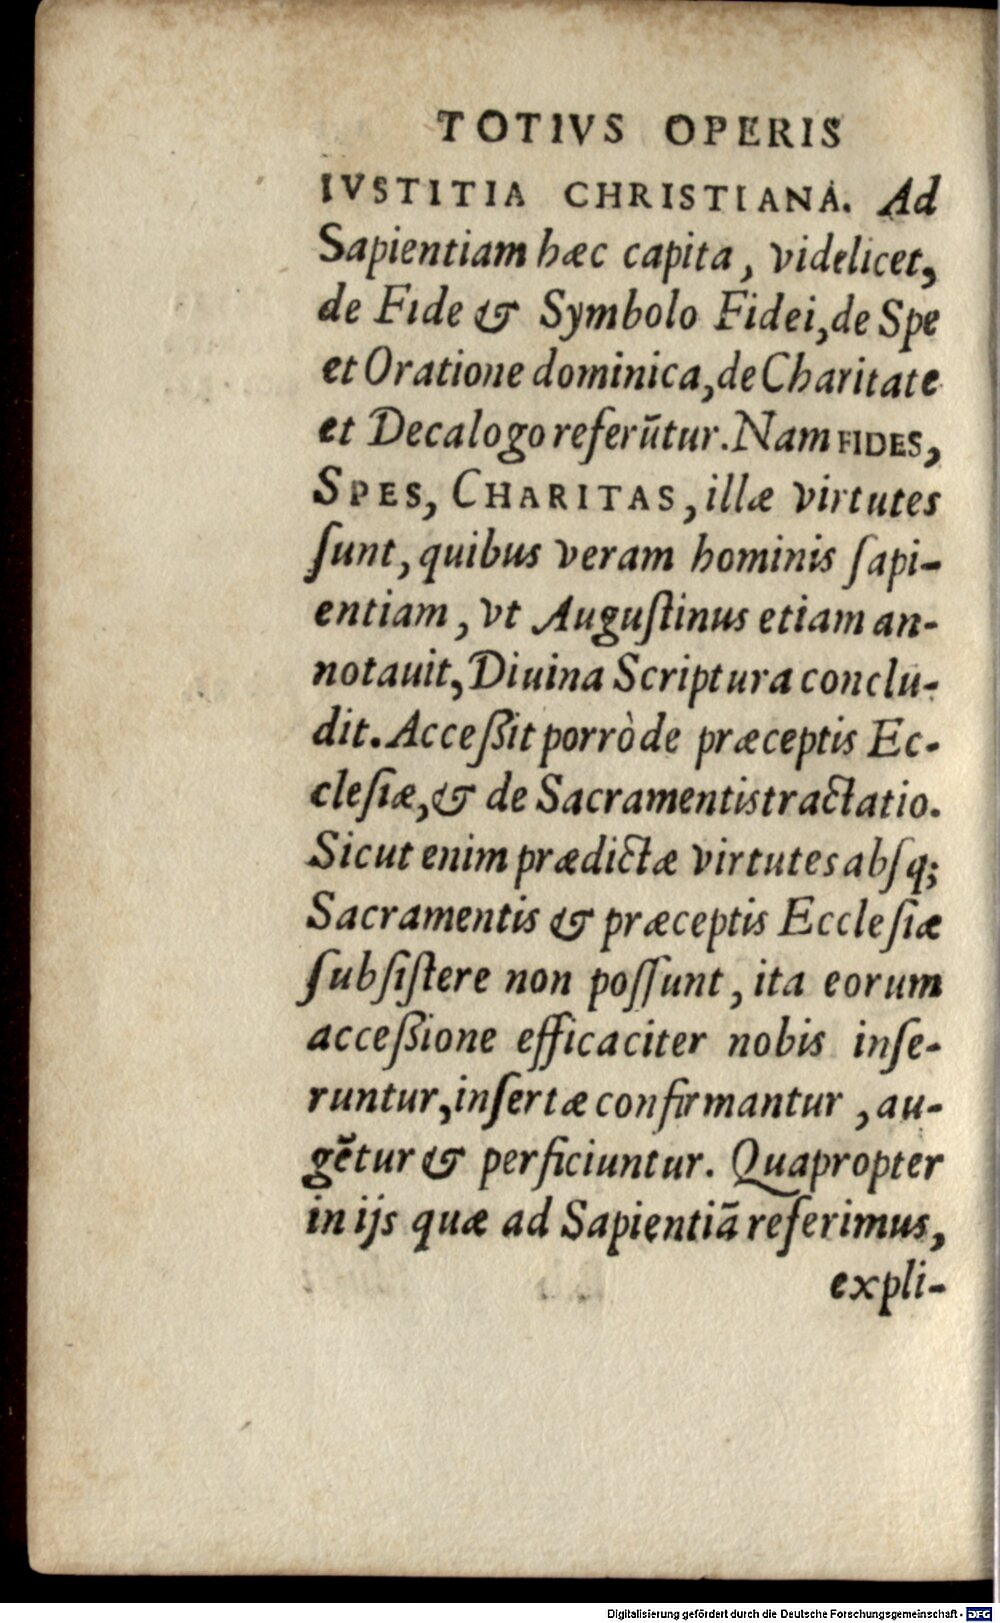 TOTIVS OPERIS
IVSTITIA CHRISTIANA. Ad
Sapientiam hæc capita, videlicet,
de Fide & Symbolo Fidei, de Spe
et Oratione dominica, de Charitate
et Decalogo referūtur. Nam FIDES,
SPES, CHARITAS, illæ virtutes
ſunt, quibus veram hominis ſapi-
entiam, vt Auguſtinus etiam an-
notauit, Diuina Scriptura conclu-
dit. Acceßit porrò de præceptis Ec-
cleſiæ, & de Sacramentis tractatio.
Sicut enim prædictæ virtutes abſq;
Sacramentis & præceptis Eccleſiæ
ſubſiſtere non poſſunt, ita eorum
acceßione efficaciter nobis inſe-
runtur, inſertæ confirmantur, au-
gētur & perficiuntur. Quapropter
in ijs quæ ad Sapientiā referimus,
expli-
Digitalisierung gefördert durch die Deutsche Forschungsgemeinschaft - DFG